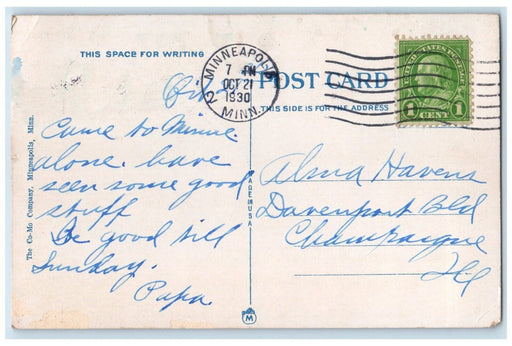 THIS SPACE FOR WRITING
MINNEAPOLIS
7 PM
OCT 21
1930
2 MINN.
POST CARD
THIS SIDE IS FOR THE ADDRESS
UNITED STATES POSTAGE
1 CENT 1
Came to Minne
alone. have
seen some good
stuff
Be good till
Sunday.
Papa.
The Co-Mo Company, Minneapolis, Minn.
MADE IN U.S.A.
M
Alma Havens
Davenport Bld
Champaigne
Ill